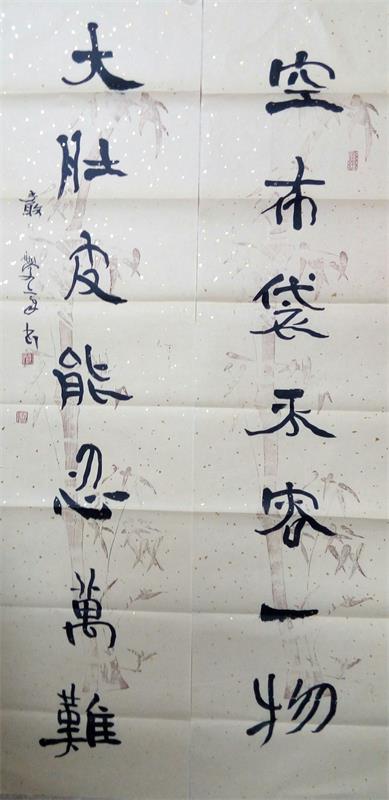 空布袋不容一物
大肚皮能忍萬難